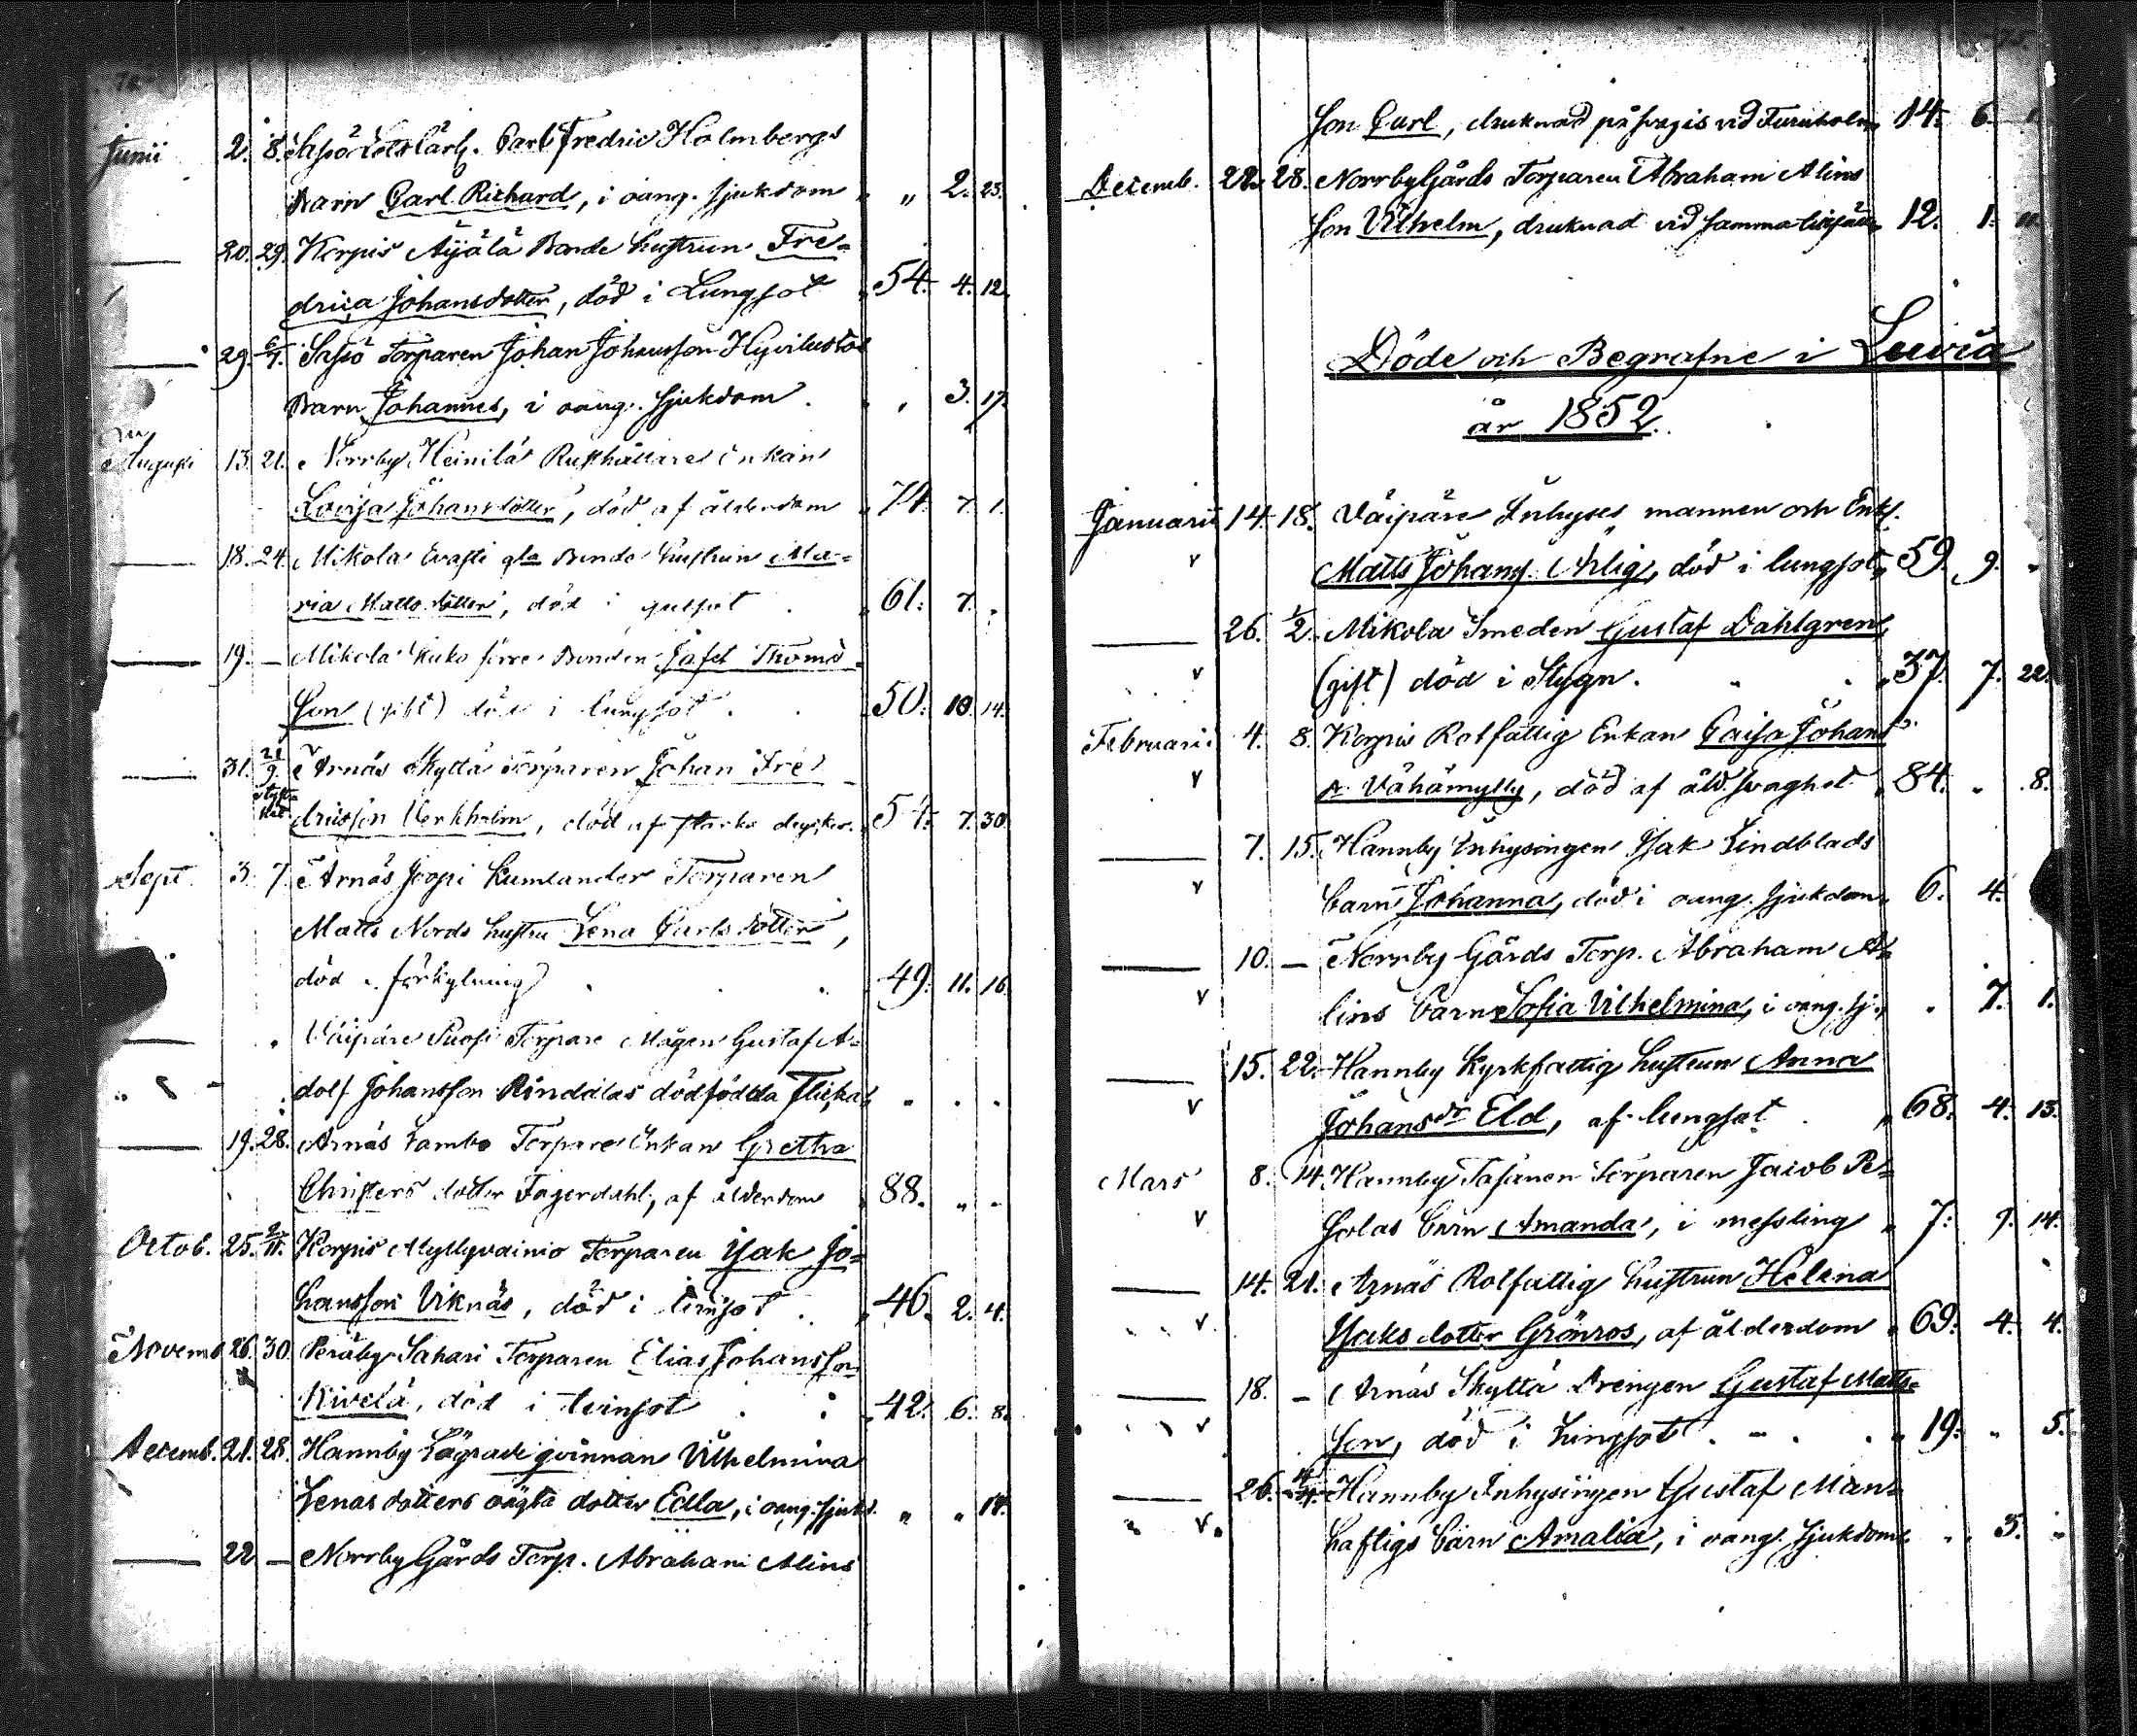 Junii 2. 8. Sassö Lots Carl Fredric Holmbergs
Barn Carl Richard, i oang. sjukdom " 2. 23.
20. 29. Korpis Äijälä Bonde hustrun Fre-
drica Johansdotter, död i Lungsot 54. 4. 12.
29. 6/7. Sassö Torparen Johan Johansson
Barn Johannes, i oang. sjukdom 3. 17.
Augusti 13. 21. Norrby Heinilä Rusthållare Enkan
Lovisa Johansdotter, död af ålderdom 74. 7. 1.
18. 24. Mikola Erasti gla Bonde hustrun Ma-
ria Mattsdotter, död i 61. 7.
19. — Mikola förre Bonden Josef Thoms
Son (gift) död i lungsot 50. 10. 14.
31. Arnäs Skyttä Torparen Johan Fre-
dricsson, död af starka drycker. 54. 7. 30
Sept. 3. 7. Arnäs Joopi Kumlander Torparen
Matts Nords hustru Lena Carlsdotter,
död förkylning 49. 11. 16.
Väipäre Torpare Mågen Gustaf A-
dolf Johansson Rindalas dödfödda flicka
19. 28. Arnäs Lambo Torpare Enkan Gretha
Christersdotter Fagerdahl, af ålderdom 88.
Octob. 25. 2/11. Korpis Myllyvainio Torparen Isak Jo-
hansson Viknäs, död i 46. 2. 4.
Novemb 26. 30. Peräby Sahari Torparen Elias Johansson
Kivelä, död i tvinsot 42. 6. 8.
Decemb. 21. 28. Hannby Lägrade qvinnan Vilhelmina
Lenas dotters oägta dotter Edla, i oang. sjukd. " " 14.
22 — Norrby Gårds Torp. Abraham Alins
75.
Son Carl, druknad på svag is vid Furuholm 14. 6. 1
Decemb. 22. 28. Norrby Gårds Torparen Abraham Alins
Son Vilhelm, druknad vid samma 12. 1. 11
Döde och Begrafne i Luvia
år 1852.
Januarii 14. 18. Väipäre Inhyses mannen och Enkl.
v Matts Johans. Ärlig, död i lungsot 59. 9.
26. 1/2. Mikola Smeden Gustaf Dahlgren
v (gift) död i Stygn. 37. 7. 22.
Februarii 4. 8. Korpis Rotfattig Enkan Caisa Johans
v Vähämylly, död af åld. svaghet 84. 8.
7. 15. Hannby Inhysingen Isak Lindblads
v barn Johanna, död i oang. sjukdom 6. 4.
10. — Norrby Gårds Torp. Abraham A-
v lins barn Sofia Vilhelmina, i oang. sj. 7. 1.
15. 22. Hannby Kyrkfattig hustrun Anna
v Johansdr Eld, af lungsot 68. 4. 13.
Mars 8. 14. Hannby Tasanen Torparen Jacob Pe-
v solas barn Amanda, i messling 7. 9. 14.
14. 21. Arnäs Rotfattig hustrun Helena
v Isaksdotter Grönros, af ålderdom 69. 4. 4.
18. — Arnäs Skyttä Drengen Gustaf Matts-
v son, död i Lungsot 19. " 5.
26. Hannby Inhysingen Gustaf Man-
v haftigs barn Amalia, i oang. sjukdom 3.